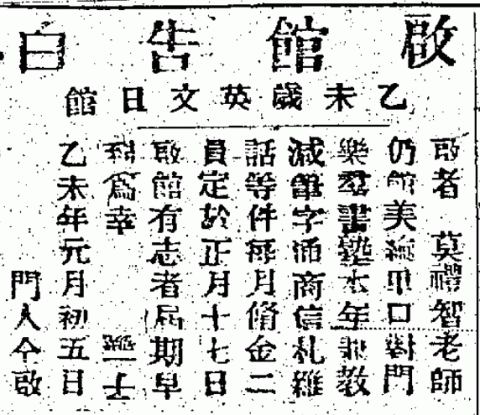 啟館告白
乙未歲英文日館
啟者 莫禮智老師
仍館美 甲口對門
樂羣書塾本年 教
減筆字通商信札雜
話等件每月脩金二
員定於正月十七日
啟館有志者屆期早
到為幸
乙未年元月初五日
門人仝啟